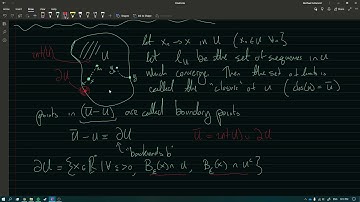 let xₙ → x in U (xₙ ∈ U ∀n)
let L_U be the set of sequences in U
which converge. Then the set of limits is
called the "closure of U (clos(U) = Ū)
int(U)
∂U
U
points in (Ū − U) are called boundary points
Ū − U = ∂U
Ū = int(U) ∪ ∂U
"backwards 6"
∂U = {x ∈ ℝ | ∀ ε > 0, B_ε(x) ∩ U, B_ε(x) ∩ Uᶜ}